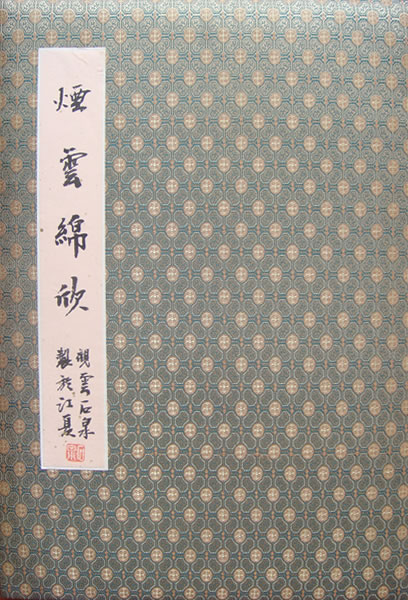 煙雲綿欣
觀雲石泉
製於江夏